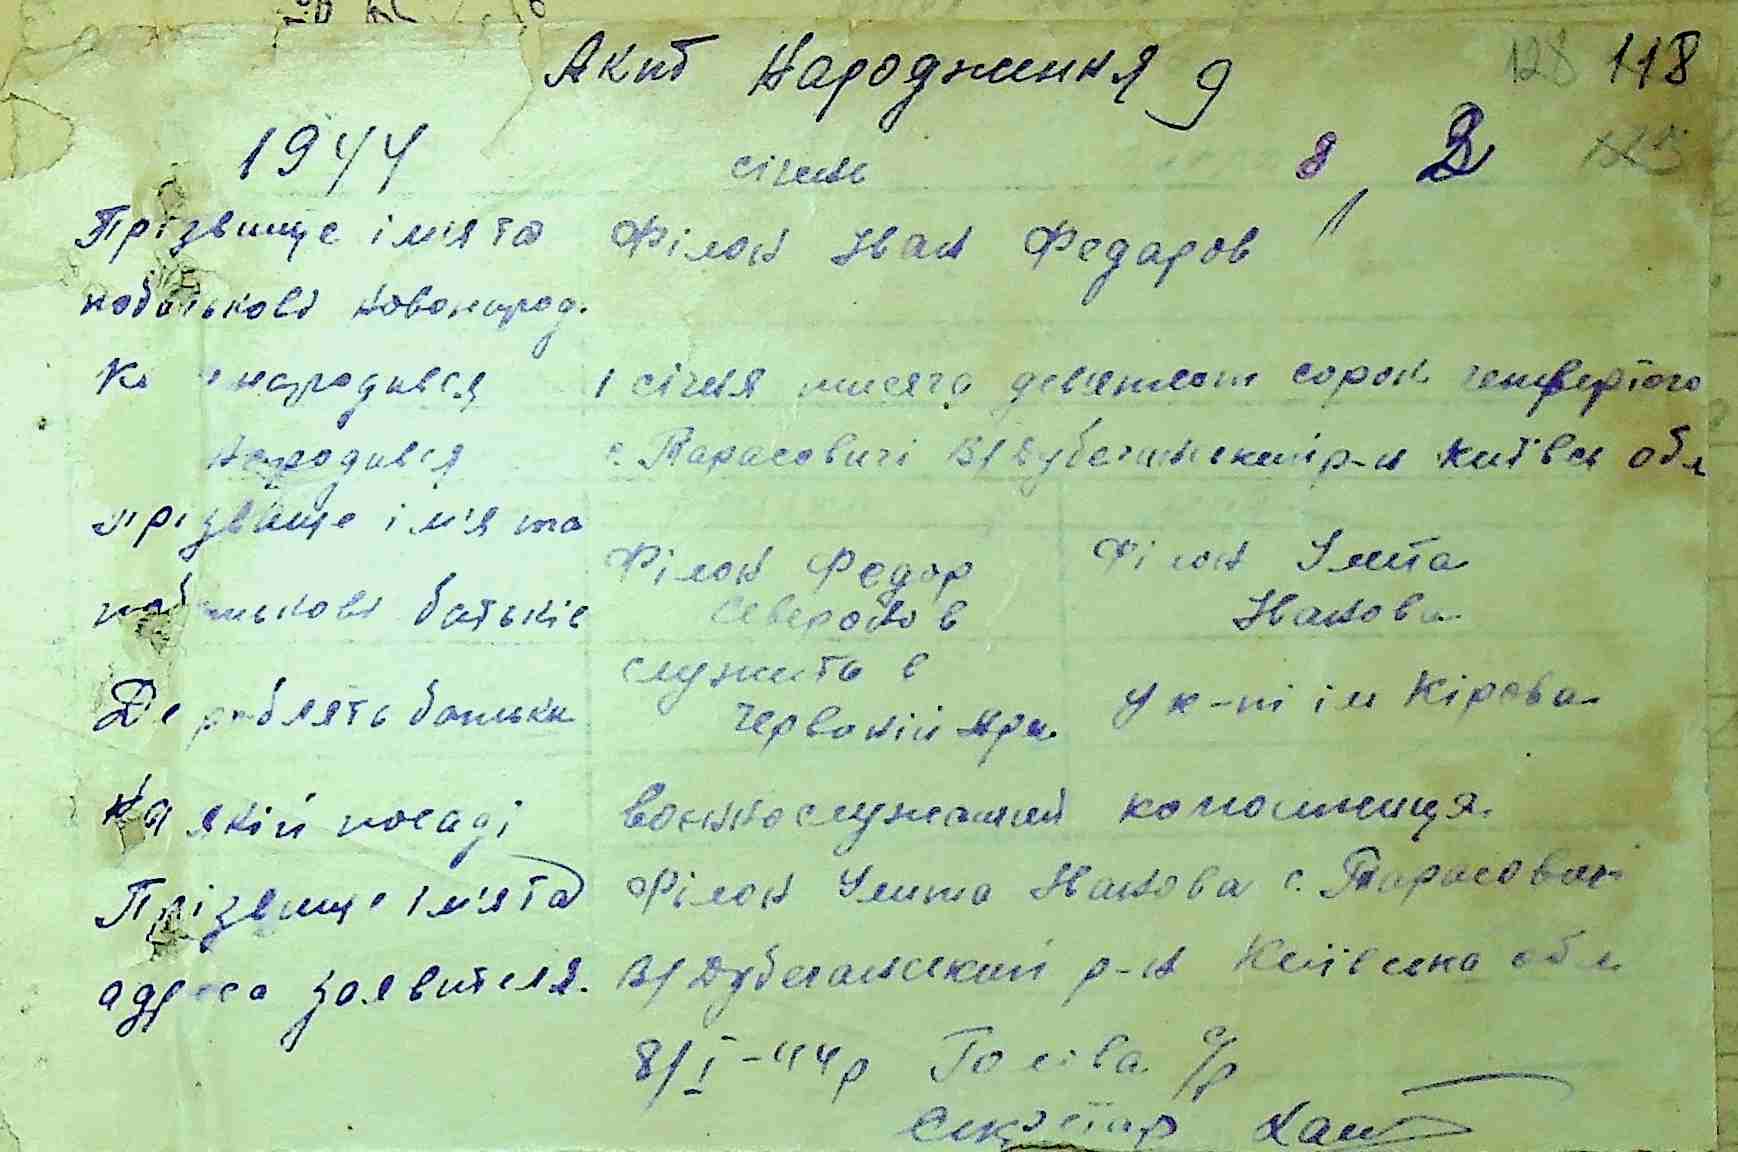 Актъ Народження 9 128 118
1944 січня 8 2
Прізвище ім'я та Філон Іван Федоров
побатькові новонарод.
народився 1 січня тисяча девятсот сорок четвертого
народився с. Тарасовичі В/Дубечанський р-н Київсь обл
прізвище ім'я та
Філон Федор Філон Улита
побатькові батьків Іванова
служить в
Де роблять батьки Червоній Арм. У к-пі ім Кірова
На якій посаді воєннослужащий колгоспниця.
Прізвище ім'я та Філон Улита Іванова с. Тарасовичі
адреса заявителя. В/Дубечанський р-н Київська обл
8/I-44р Голова с/р
Секретар